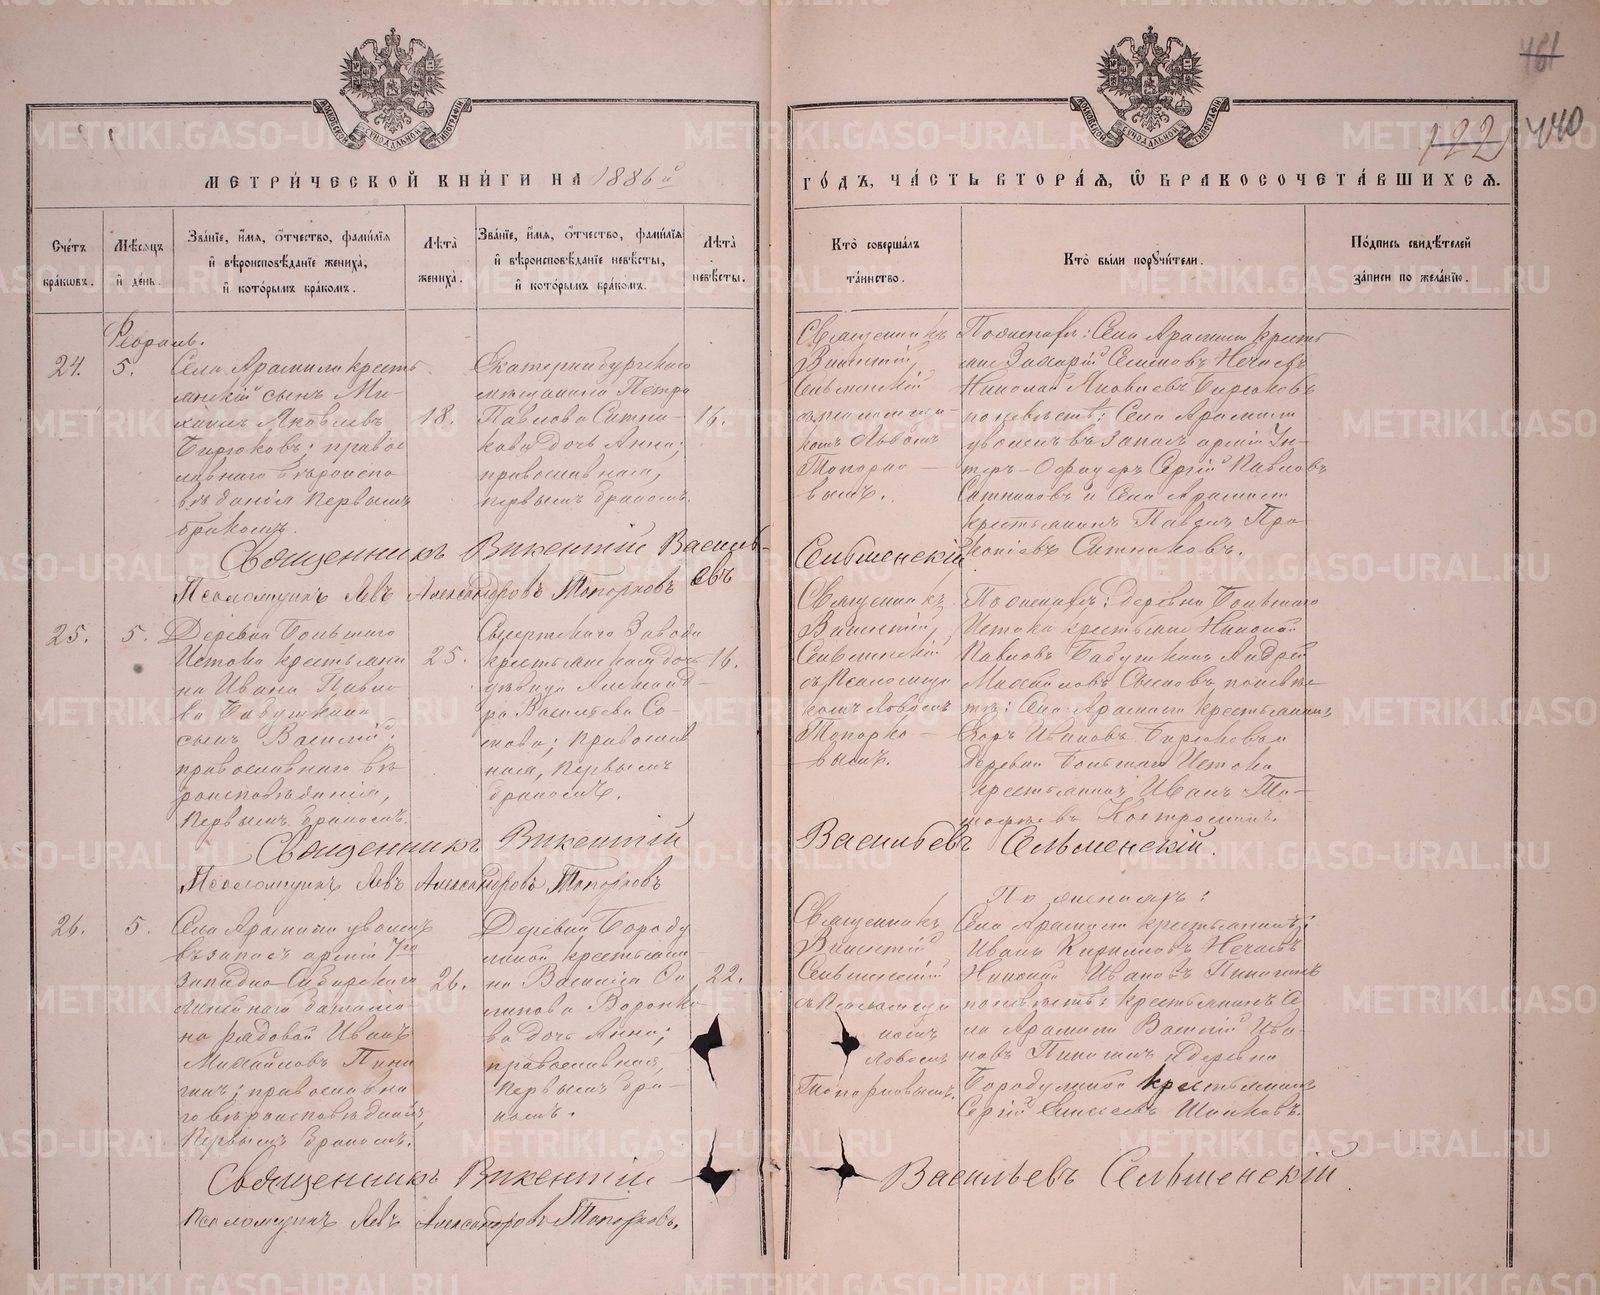 461
122
440
МЕТРИ́ЧЕСКОЙ КНИ́ГИ НА 1886й
ГО́ДЪ, ЧА́СТЬ ВТОРА́Я, Ѡ БРАКОСОЧЕТА́ВШИХСЯ.
Сче́тъ бра́кѡвъ.
Мѣ́сяцъ и҆ де́нь.
Зва́нїе, и҆́мя, ѻ҆́тчество, фами́лїя и҆ вѣроисповѣ́данїе жениха̀, и҆ кото́рымъ бра́комъ.
Лѣта̀ жениха̀.
Зва́нїе, и҆́мя, ѻ҆́тчество, фами́лїя и҆ вѣроисповѣ́данїе невѣ́сты, и҆ кото́рымъ бра́комъ.
Лѣта̀ невѣ́сты.
Кто̀ соверша́лъ та́инство.
Кто̀ бы́ли порꙋчи́тели.
По́дпись свидѣ́телей за́писи по жела́нїю.
Февраль.
24.
5.
Села Арамили кресть-
янскій сынъ Ми-
хаилъ Яковлевъ
Бирюковъ; правос-
лавнаго вѣроиспо-
вѣданія первымъ
бракомъ.
18.
Екатеринбургскаго
мѣщанина Петра
Павлова Ситни-
кова дочь Анна;
православная,
первымъ бракомъ.
16.
Священникъ
Викентій
Сельменскій
съ псаломщи-
комъ Львомъ
Топорко-
вымъ.
По женихѣ: Села Арамили кресть-
яне Захарій Семеновъ Нечаевъ
Николай Яковлевъ Бирюковъ
по невѣстѣ: Села Арамили
уволен. въ запасъ арміи Ун-
теръ-Офицеръ Сергій Павловъ
Ситниковъ и Села Арамили
крестьянинъ Павелъ Про-
копіевъ Ситниковъ.
Священникъ Викентій Василь-
евъ Сельменскій
Псаломщикъ Левъ Александровъ Топорковъ
25.
5.
Деревни Большаго
Истока крестьяни-
на Ивана Павло-
ва Бабушкина
сынъ Василій;
православнаго вѣ-
роисповѣданія,
первымъ бракомъ.
25.
Сысертскаго Завода
крестьянская дочь
дѣвица Александ-
ра Васильева Со-
православ-
ная, первымъ
бракомъ.
16.
Священникъ
Викентій
Сельменскій
съ псаломщи-
комъ Львомъ
Топорко-
вымъ.
По женихѣ: деревни Большаго
Истока крестьяне Николай
Павловъ Бабушкинъ Андрей
Михайловъ по невѣс-
тѣ: Села Арамили крестьянинъ
Ивановъ Бирюковъ и
Деревни Большаго Истока
крестьянинъ Иванъ Ти-
моѳеевъ Костроминъ.
Священникъ Викентій Васильевъ Сельменскій.
Псаломщикъ Левъ Александровъ Топорковъ
26.
5.
Села Арамили уволен.
въ запасъ арміи 7го
Западно-Сибирскаго
линейнаго баталіо-
на рядовой Иванъ
Михайловъ Пина-
гинъ; православна-
го вѣроисповѣданія,
первымъ бракомъ.
26.
Деревни Бороду-
линой крестьяни-
на Василія
Воронко-
ва дочь Анна;
православная,
первымъ бра-
комъ.
22.
Священникъ
Викентій
Сельменскій
съ псаломщи-
комъ
Львомъ
Топорковымъ.
По женихѣ:
Села Арамили крестьянинъ
Иванъ Кириловъ Нечаевъ
Николай Ивановъ Пинагинъ
по невѣстѣ: крестьянинъ Се-
ла Арамили Василій Ива-
новъ Пинагинъ и деревни
Бородулиной крестьянинъ
Сергій Елисеевъ
Священникъ Викентій Васильевъ Сельменскій
Псаломщикъ Левъ Александровъ Топорковъ.
METRIKI.GASO-URAL.RU